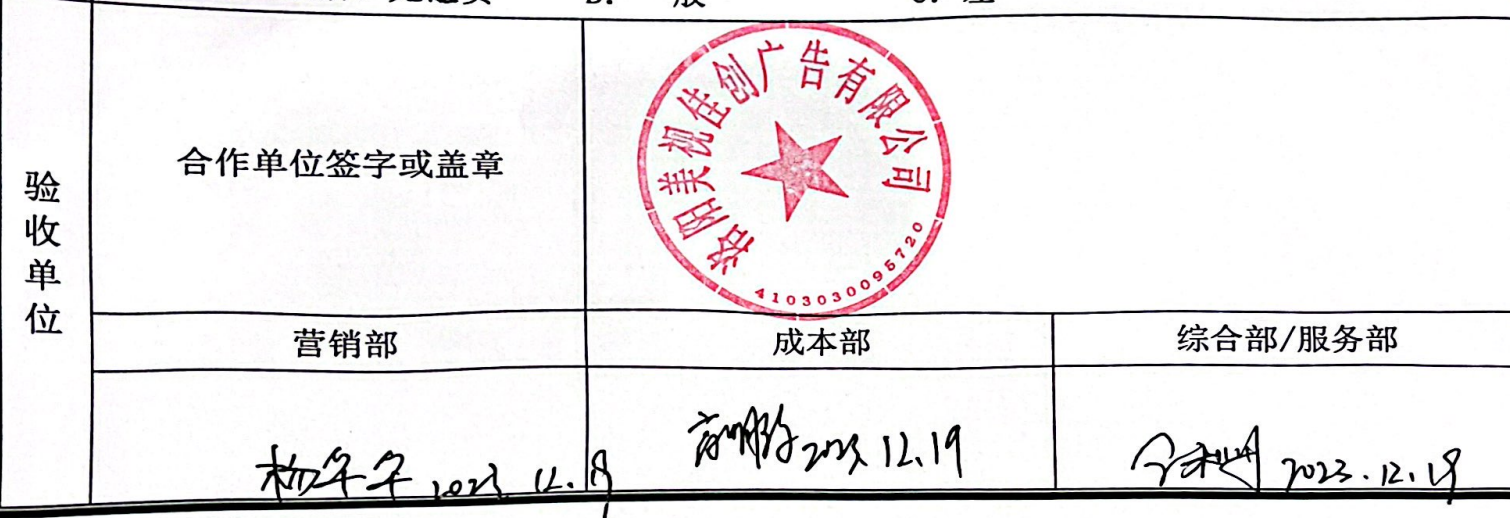 验收单位
合作单位签字或盖章
洛阳美视佳创广告有限公司
4103030095720
营销部
成本部
综合部/服务部
2023.12.19
2023.12.19
2023.12.19